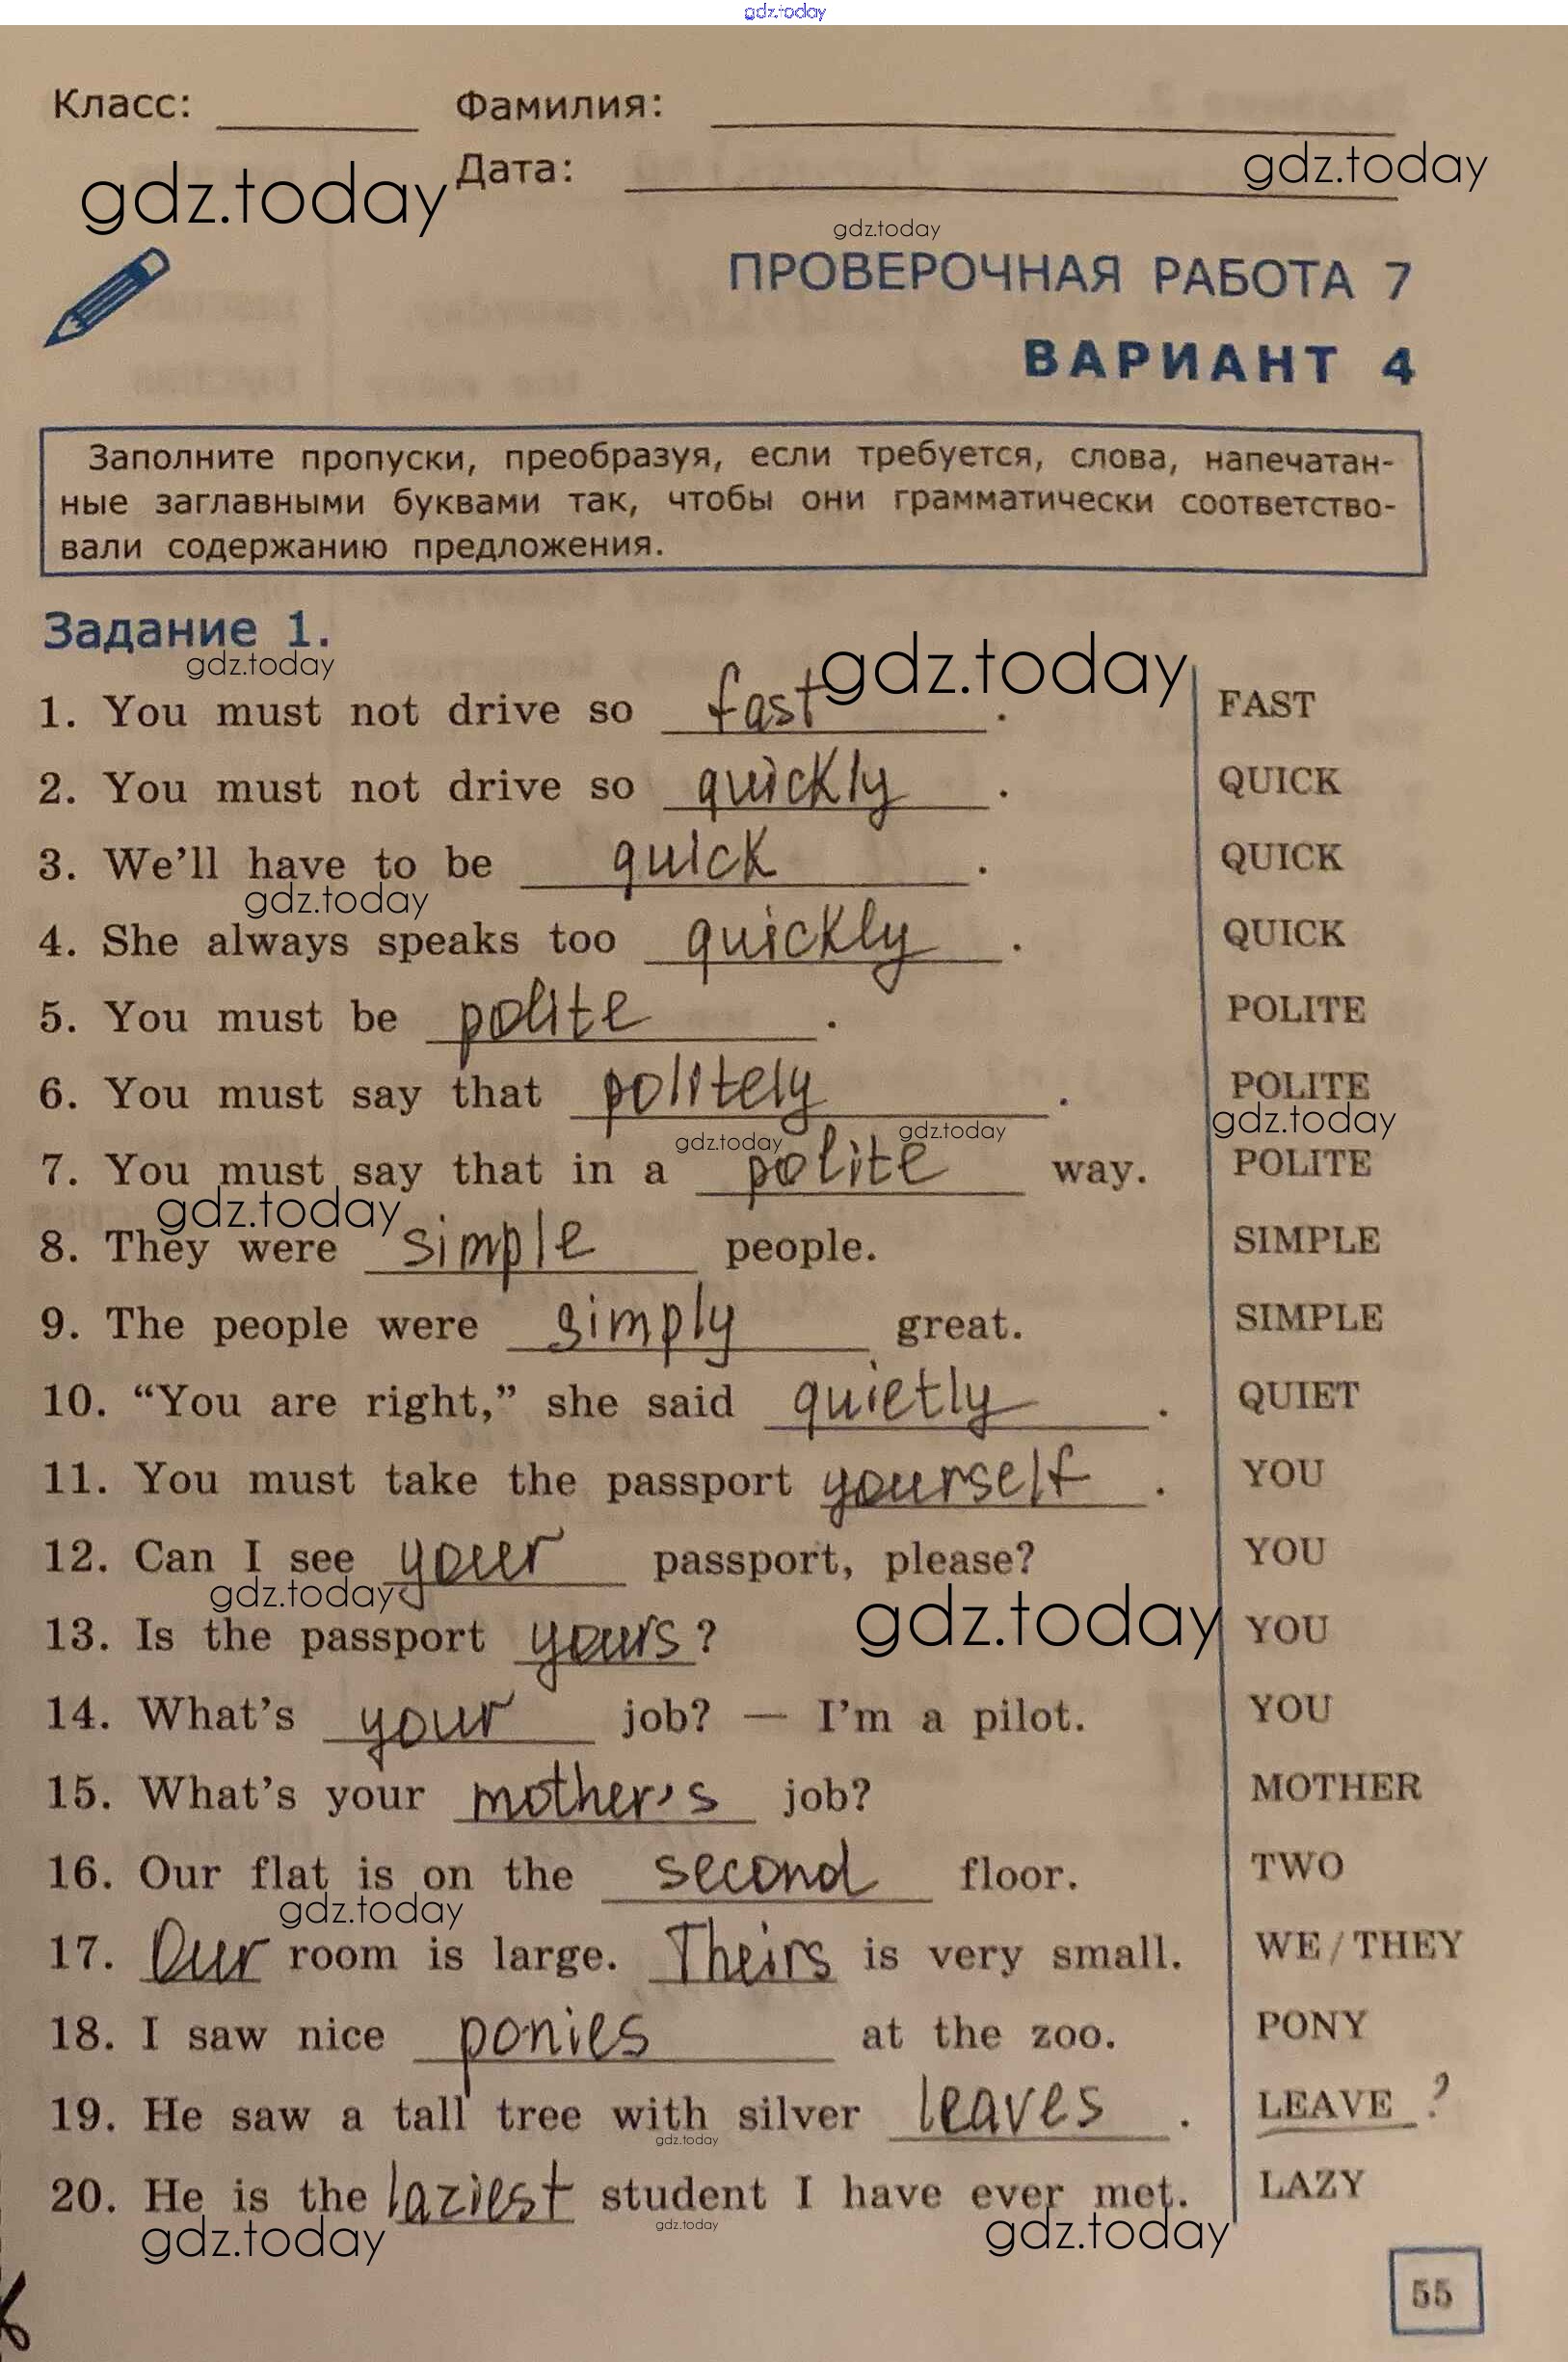 gdz.today
Класс: Фамилия:
gdz.today Дата: gdz.today
gdz.today
ПРОВЕРОЧНАЯ РАБОТА 7
ВАРИАНТ 4
Заполните пропуски, преобразуя, если требуется, слова, напечатан-
ные заглавными буквами так, чтобы они грамматически соответство-
вали содержанию предложения.
Задание 1.
gdz.today gdz.today
1. You must not drive so fast . FAST
2. You must not drive so quickly . QUICK
3. We'll have to be quick . QUICK
gdz.today
4. She always speaks too quickly . QUICK
5. You must be polite . POLITE
6. You must say that politely . POLITE
gdz.today gdz.today gdz.today
7. You must say that in a polite way. POLITE
gdz.today
8. They were simple people. SIMPLE
9. The people were simply great. SIMPLE
10. “You are right,” she said quietly . QUIET
11. You must take the passport yourself . YOU
12. Can I see your passport, please? YOU
gdz.today gdz.today
13. Is the passport yours ? YOU
14. What's your job? — I'm a pilot. YOU
15. What's your mother's job? MOTHER
16. Our flat is on the second floor. TWO
gdz.today
17. Our room is large. Theirs is very small. WE / THEY
18. I saw nice ponies at the zoo. PONY
19. He saw a tall tree with silver leaves . LEAVE ?
gdz.today
20. He is the laziest student I have ever met. LAZY
gdz.today gdz.today gdz.today
55